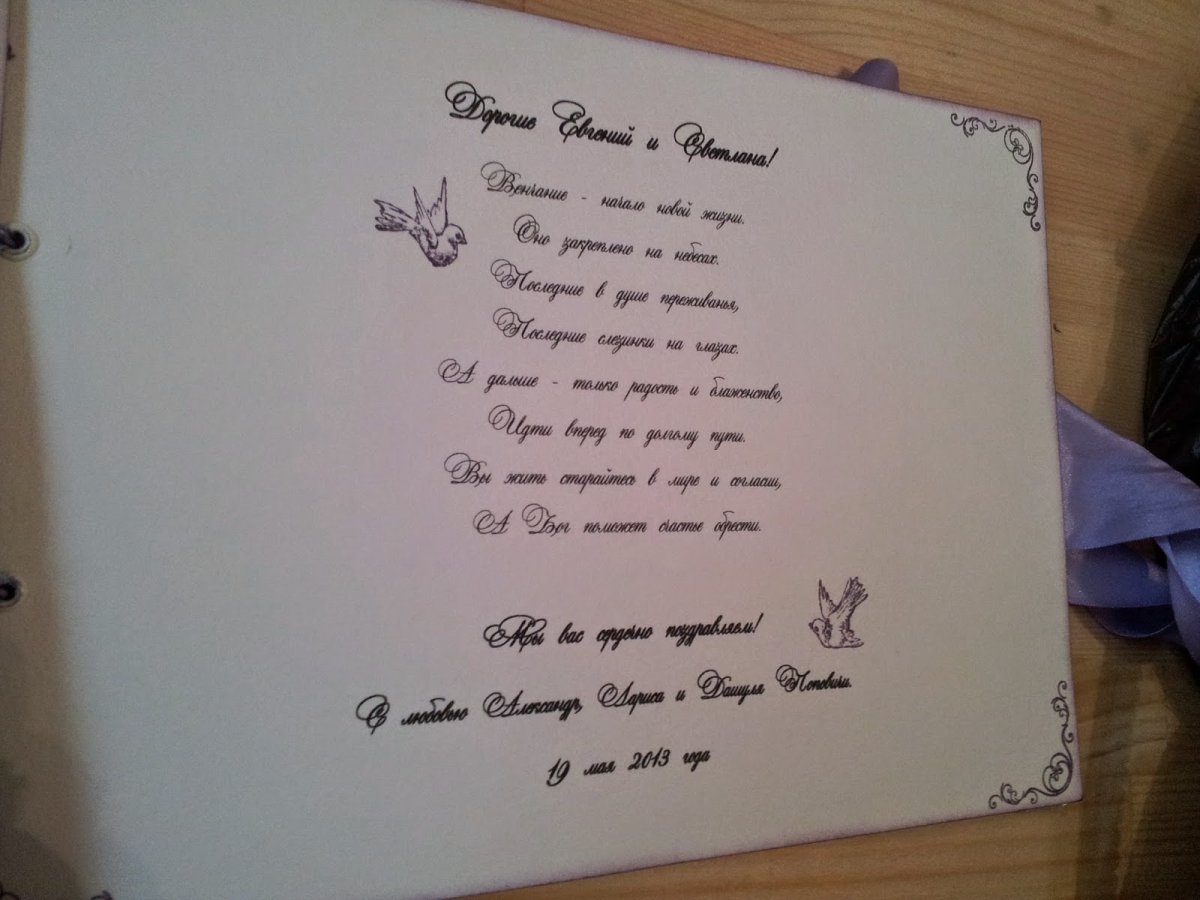 Дорогие Евгений и Светлана!
Венчание - начало новой жизни.
Оно закреплено на небесах.
Последние в душе переживанья,
Последние слезинки на глазах.
А дальше - только радость и блаженство,
Идти вперед по долгому пути.
Вы жить старайтесь в мире и согласии,
А Бог поможет счастье обрести.
Мы вас сердечно поздравляем!
С любовью Александр, Лариса и Дашуля Поповичи.
19 мая 2013 года